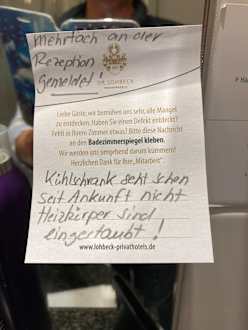 Mehrfach an der
Rezeption
gemeldet!
DR. LOHBECK
PRIVATHOTELS
Liebe Gäste, wir bemühen uns sehr, alle Mängel
zu entdecken. Haben Sie einen Defekt entdeckt?
Fehlt in Ihrem Zimmer etwas? Bitte diese Nachricht
an den Badezimmerspiegel kleben.
Wir werden uns umgehend darum kümmern!
Herzlichen Dank für Ihre „Mitarbeit“.
Kühlschrank geht schon
seit Ankunft nicht
Heizkörper sind
eingestaubt!
www.lohbeck-privathotels.de